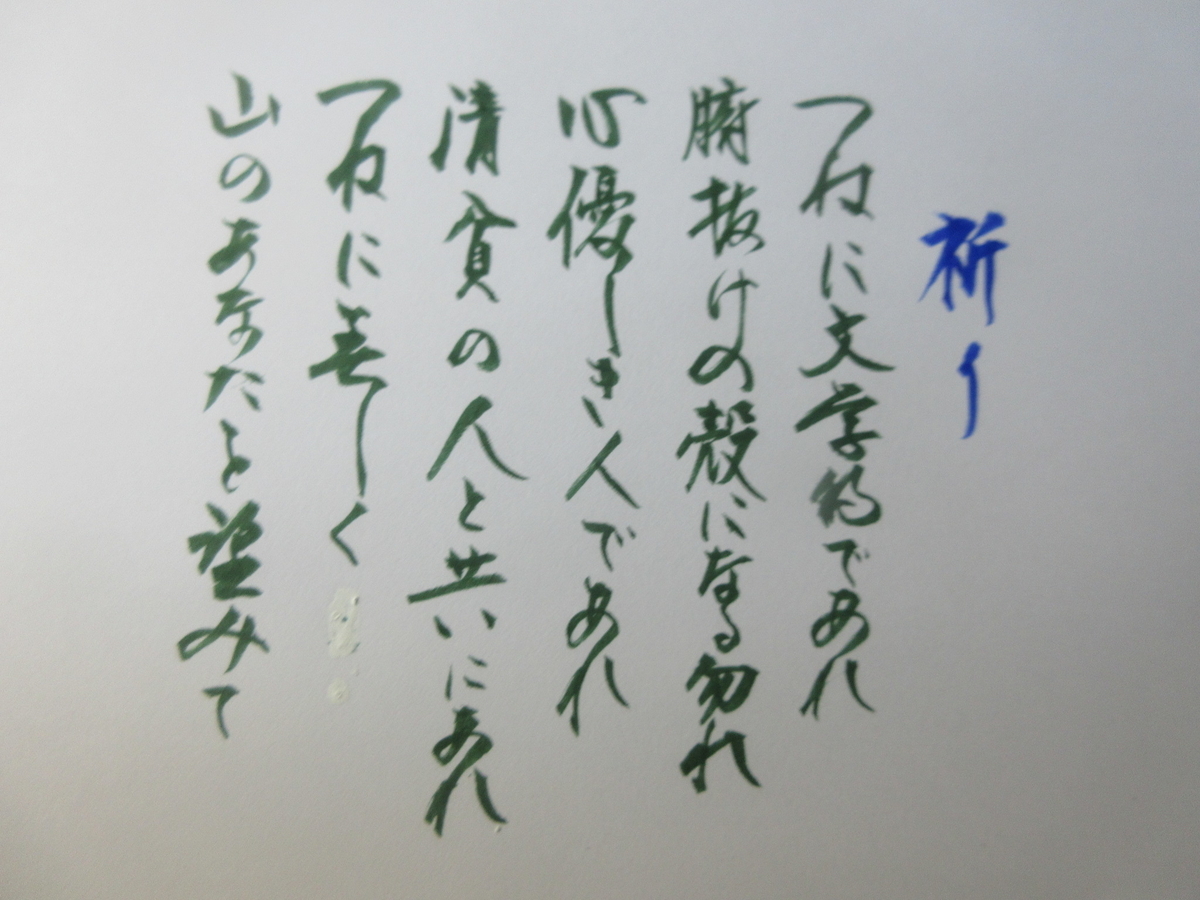 祈り
つねに文学的であれ
腑抜けの殻になる勿れ
心優しき人であれ
清貧の人と共にあれ
つねに美しく
山のあなたを望みて